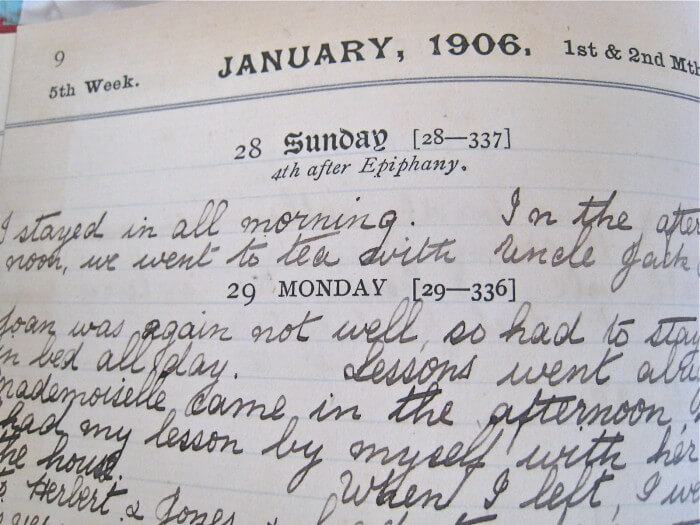 9
JANUARY, 1906.
1st & 2nd Mth
5th Week.
28 Sunday [28—337]
4th after Epiphany.
I stayed in all morning. In the after
noon, we went to tea with Uncle Jack
29 MONDAY [29—336]
Joan was again not well, so had to stay
in bed all day. Lessons went
mademoiselle came in the afternoon,
had my lesson by myself with her
the house.
Herbert & Jones
When I left, I